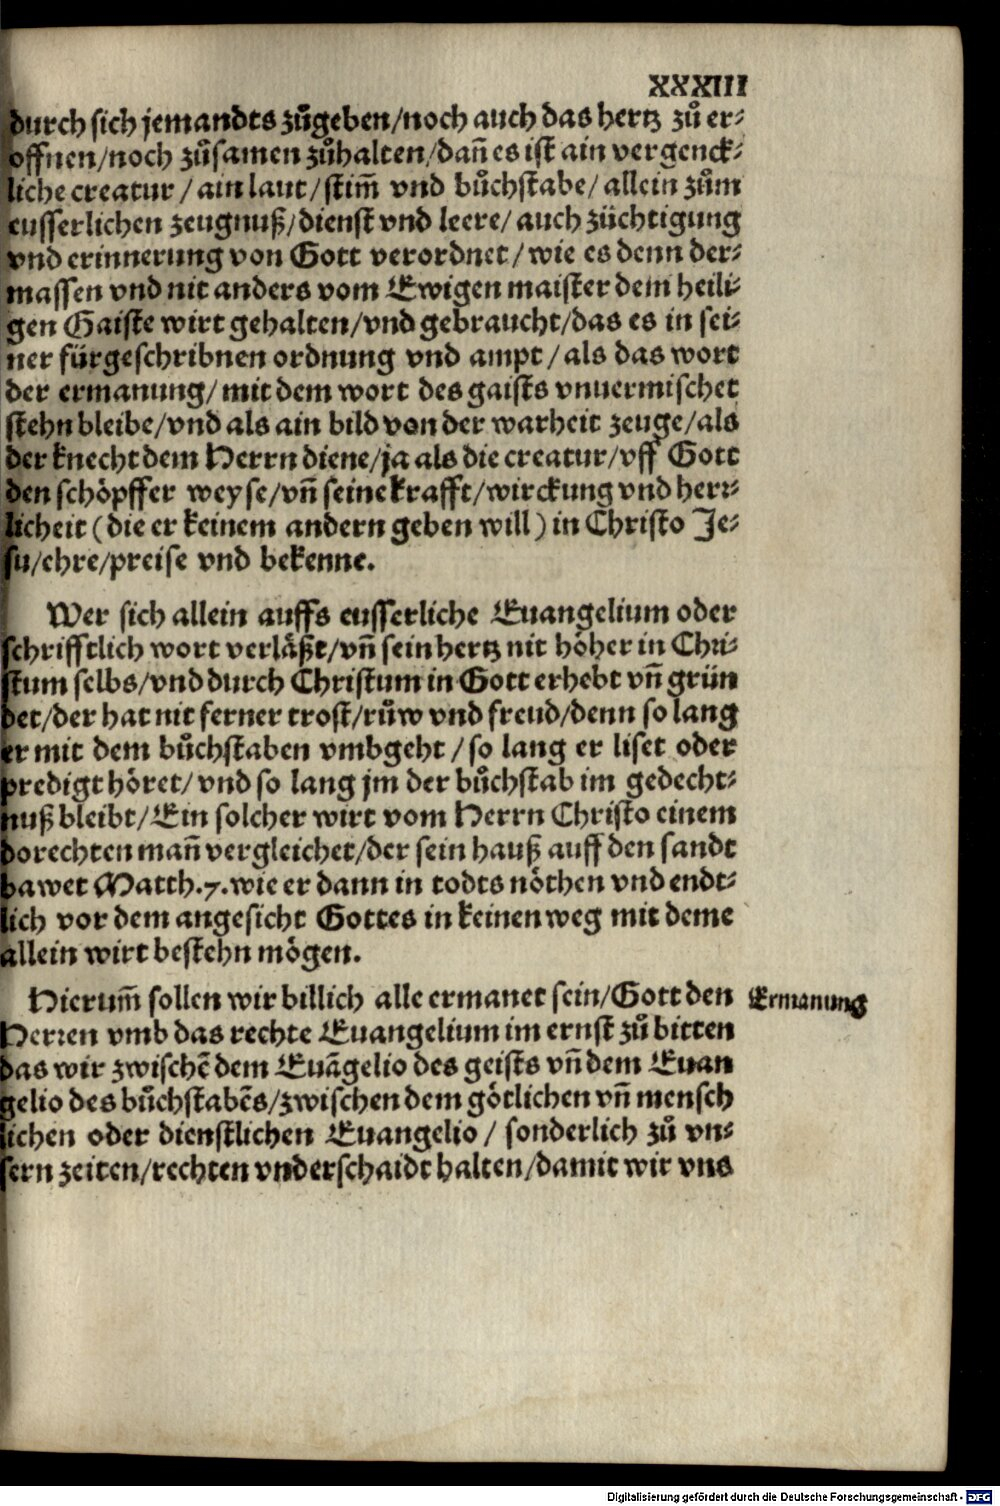 XXXIII
durch sich jemandts zůgeben/noch auch das hertz zů er⸗
offnen/noch zůsamen zůhalten/dañ es ist ain vergenck⸗
liche creatur / ain laut/stim̃ vnd bůchstabe/ allein zům
eusserlichen zeugnuß/dienst vnd leere/ auch züchtigung
vnd erinnerung von Gott verordnet/ wie es denn der⸗
massen vnd nit anders vom Ewigen maister dem heili⸗
gen Gaiste wirt gehalten/vnd gebraucht/das es in sei⸗
ner fürgeschribnen ordnung vnd ampt / als das wort
der ermanung/ mit dem wort des gaists vnuermischet
stehn bleibe/vnd als ain bild von der warheit zeuge/als
der knecht dem Herrn diene/ja als die creatur/vff Gott
den schöpffer weyse/vñ seine krafft/wirckung vnd herr⸗
licheit (die er keinem andern geben will) in Christo Je⸗
su/ehre/preise vnd bekenne.
Wer sich allein auffs eusserliche Euangelium oder
schrifftlich wort verläßt/vñ sein hertz nit höher in Chri⸗
stum selbs/vnd durch Christum in Gott erhebt vñ grün
det/der hat nit ferner trost/růw vnd freud/denn so lang
er mit dem bůchstaben vmbgeht / so lang er liset oder
predigt höret/ vnd so lang jm der bůchstab im gedecht⸗
nuß bleibt/ Ein solcher wirt vom Herrn Christo einem
dorechten mañ vergleichet/der sein hauß auff den sandt
bawet Matth.7.wie er dann in todts nöthen vnd endt⸗
lich vor dem angesicht Gottes in keinen weg mit deme
allein wirt bestehn mögen.
Hierum̃ sollen wir billich alle ermanet sein/Gott den Ermanung
Herren vmb das rechte Euangelium im ernst zů bitten
das wir zwischẽ dem Euãgelio des geists vñ dem Euan
gelio des bůchstabẽs/zwischen dem götlichen vñ mensch
lichen oder dienstlichen Euangelio / sonderlich zů vn⸗
sern zeiten/rechten vnderschaidt halten/damit wir vns
Digitalisierung gefördert durch die Deutsche Forschungsgemeinschaft - DFG